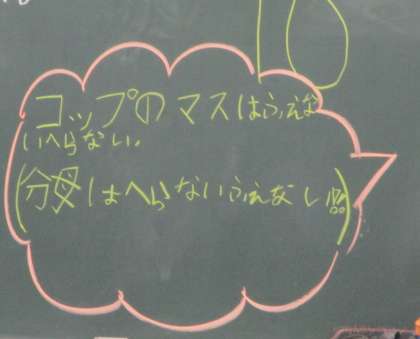 コップのマスはふえな
いへらない。
(分母はへらないふえなし)